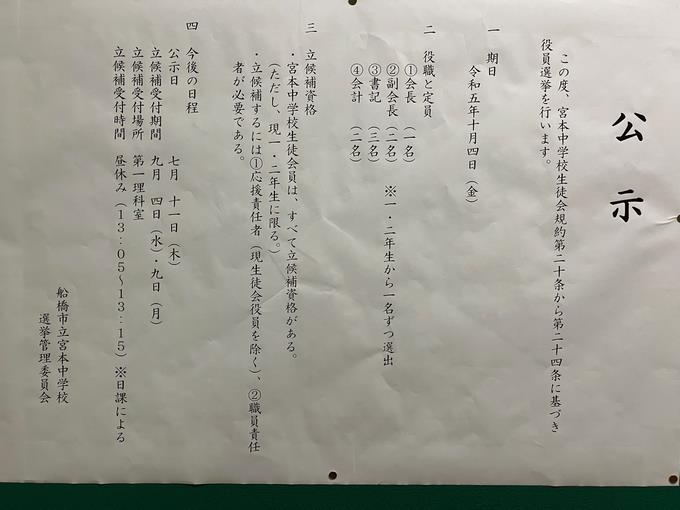 公示
この度、宮本中学校生徒会規約第二十条から第二十四条に基づき
役員選挙を行います。
一 期日
令和五年十月四日(金)
二 役職と定員
①会長 (一名)
②副会長 (二名) ※一・二年生から一名ずつ選出
③書記 (三名)
④会計 (二名)
三 立候補資格
・宮本中学校生徒会員は、すべて立候補資格がある。
(ただし、現一・二年生に限る。)
・立候補するには①応援責任者(現生徒会役員を除く)、②職員責任
者が必要である。
四 今後の日程
公示日 七月 十一日(木)
立候補受付期間 九月 四日(水)・九日(月)
立候補受付場所 第一理科室
立候補受付時間 昼休み(13:05~13:15)※日課による
船橋市立宮本中学校
選挙管理委員会